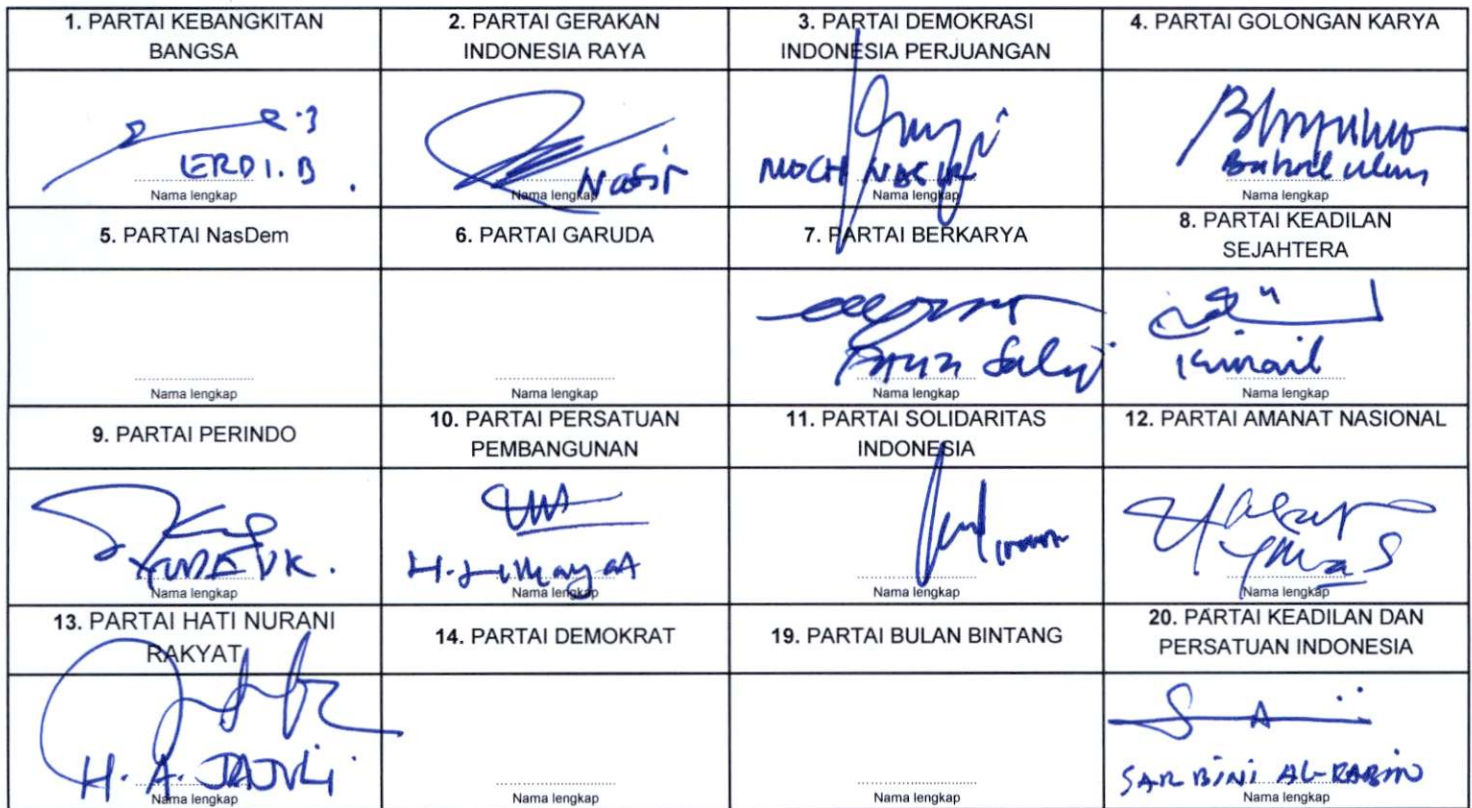 1. PARTAI KEBANGKITAN
BANGSA
2. PARTAI GERAKAN
INDONESIA RAYA
3. PARTAI DEMOKRASI
INDONESIA PERJUANGAN
4. PARTAI GOLONGAN KARYA
ERDI. B
Nama lengkap
Nasir
Nama lengkap
MOCH NASIR
Nama lengkap
Nama lengkap
5. PARTAI NasDem
6. PARTAI GARUDA
7. PARTAI BERKARYA
8. PARTAI KEADILAN
SEJAHTERA
Nama lengkap
Nama lengkap
Nama lengkap
Nama lengkap
9. PARTAI PERINDO
10. PARTAI PERSATUAN
PEMBANGUNAN
11. PARTAI SOLIDARITAS
INDONESIA
12. PARTAI AMANAT NASIONAL
Nama lengkap
Nama lengkap
Nama lengkap
Nama lengkap
13. PARTAI HATI NURANI
RAKYAT
14. PARTAI DEMOKRAT
19. PARTAI BULAN BINTANG
20. PARTAI KEADILAN DAN
PERSATUAN INDONESIA
H. A. JAJULi
Nama lengkap
Nama lengkap
Nama lengkap
SARBINI
Nama lengkap